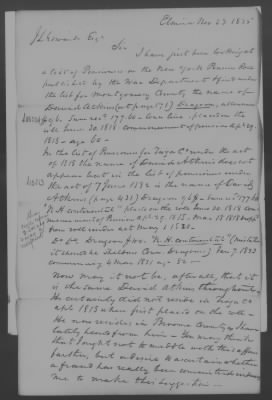 Elmira Nov 23 1835
J L Edwards Esq
Sir I have just been looking at
a list of Pensioners on the New York Pension Roll
published by the War Department & find under
the list for Montgomery County the name of
David Atkins (at page 171) Dragoon, allowance
$96.
June 30 1818 commencement of pension apl 29.
1818 - age 60 -
In the list of Pensioners for Tioga Co under the act
of 1818 the name of David Atkins does not
appear but in the list of pensioners under
the act of 7 June 1832 is the name of David
Atkins (page 431) Dragoon $96
"N H continental" placed on the rolls June 30 1818 com
mencement of pension apl 29. 1818. Mar 18 1818
roll under act may 1 1820.
Dragoon $100. "N. H. continental"
it should be Sheldons Con. Dragoons) Jan 7. 1833
commencing 4 May 1831 age - 82 -
Now may it not be, after all, that it
is the same David Atkins throughout
He certainly did not reside in Tioga Co
apl 1818 when first placed on the roll -
He now resides in Broome County &
lately heard from him - You may think
that I ought not to meddle with this affair
farther, but a desire to ascertain whether
a fraud has really been committed induces
me to make this suggestion -